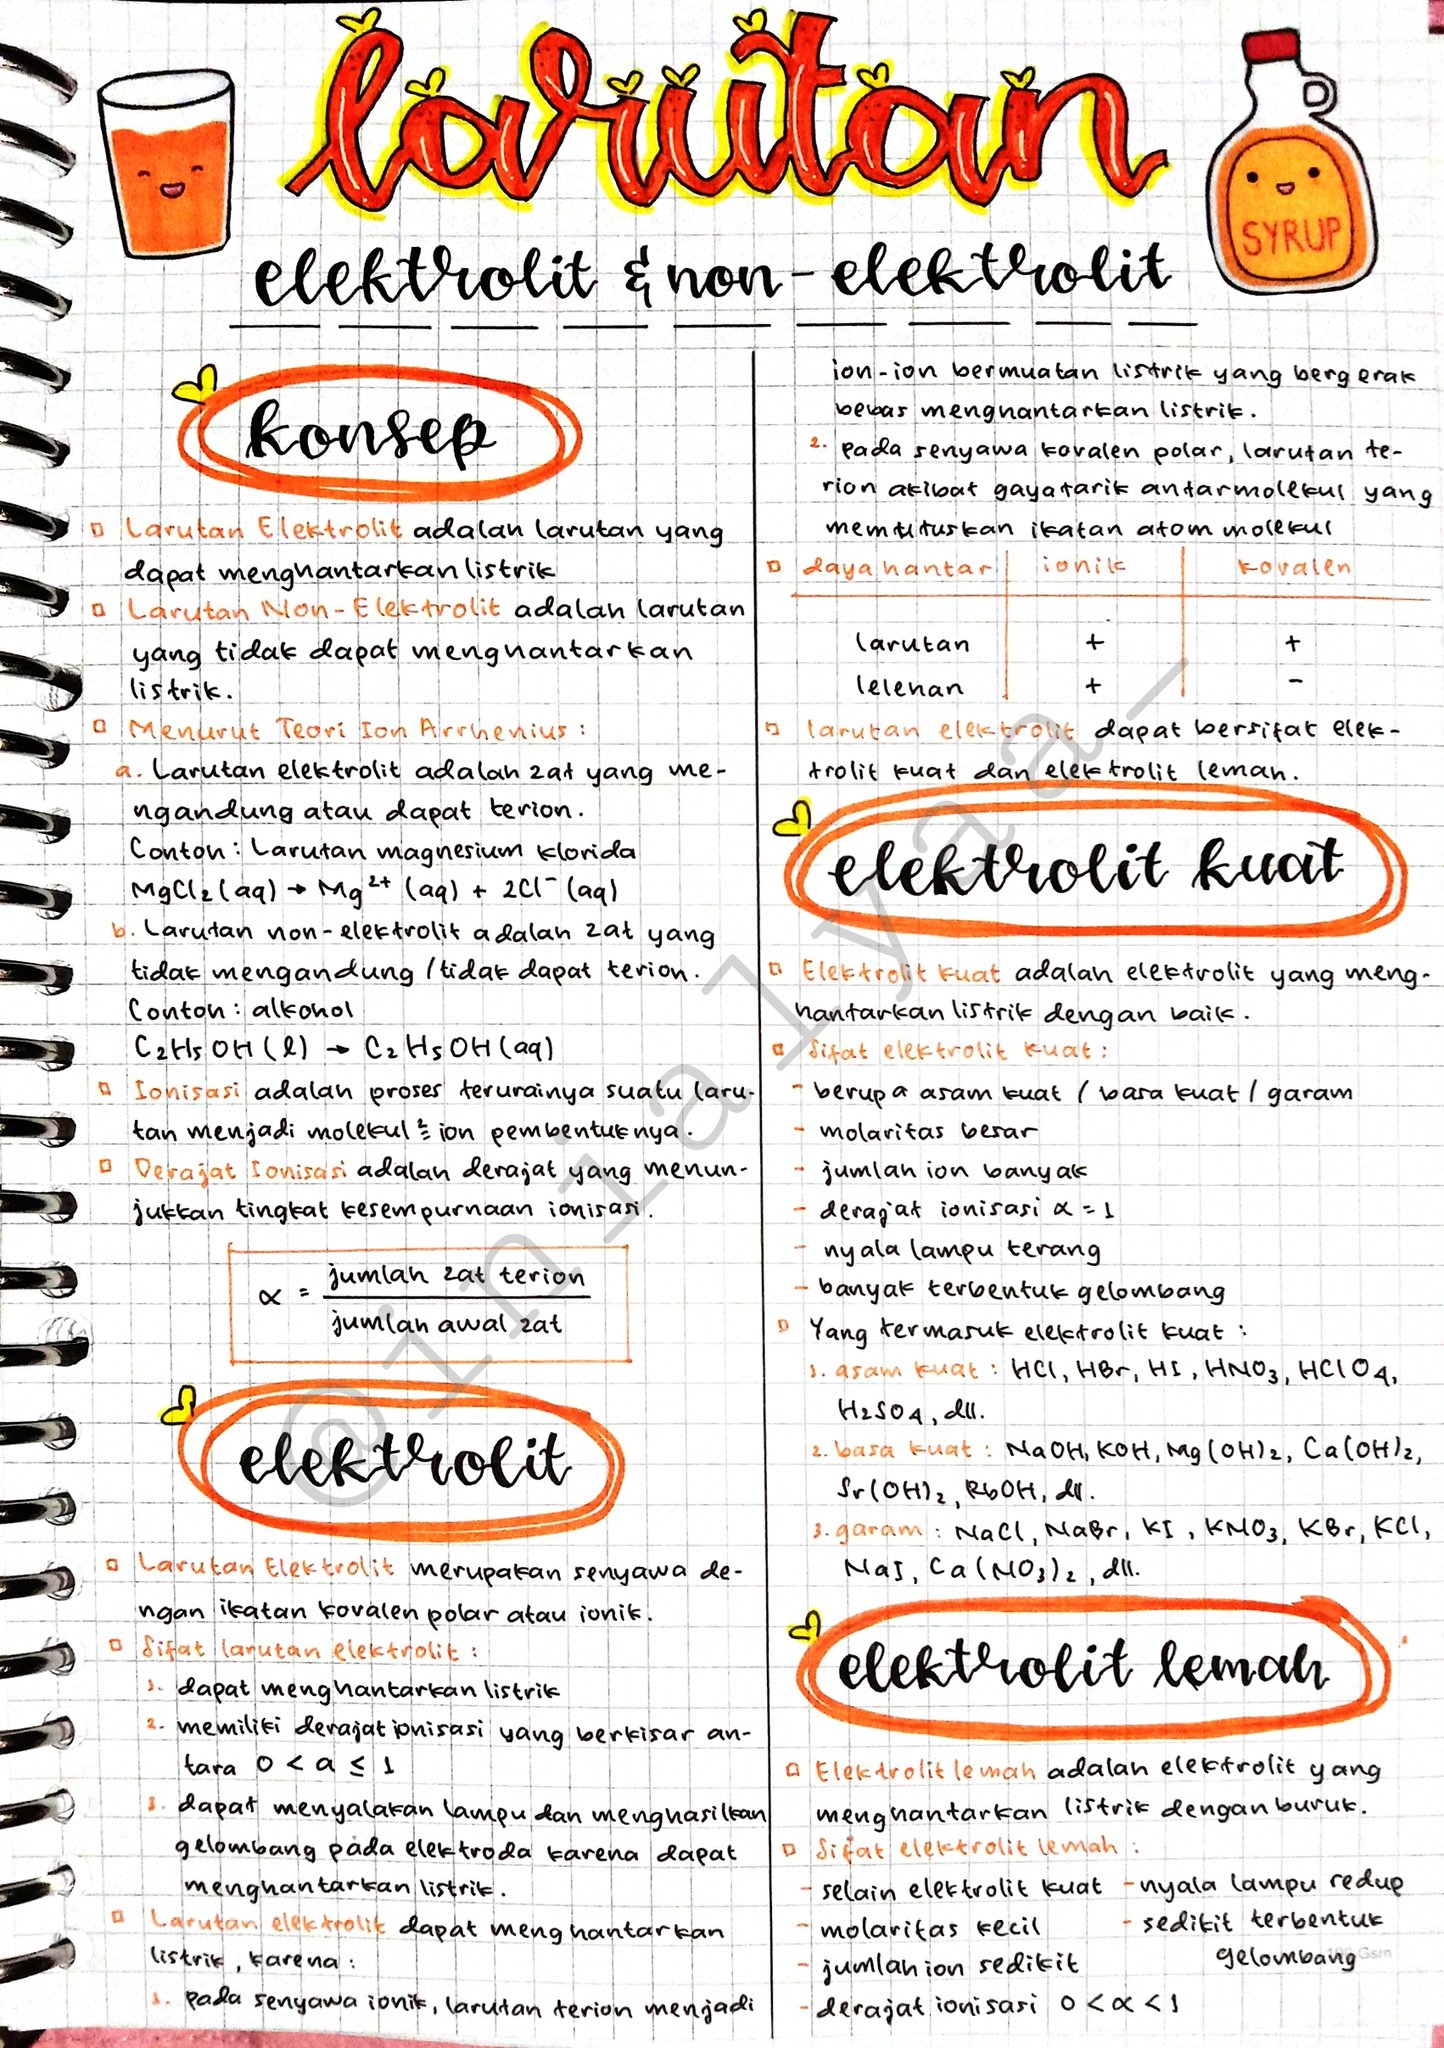 larutan
SYRUP
elektrolit & non-elektrolit
konsep
Larutan Elektrolit adalah larutan yang
dapat menghantarkan listrik
Larutan Non-Elektrolit adalah larutan
yang tidak dapat menghantarkan
listrik.
Menurut Teori Ion Arrhenius :
a. Larutan elektrolit adalah zat yang me-
ngandung atau dapat terion.
Contoh : Larutan magnesium klorida
MgCl₂ (aq) → Mg²⁺ (aq) + 2Cl⁻ (aq)
b. Larutan non-elektrolit adalah zat yang
tidak mengandung / tidak dapat terion.
Contoh : alkohol
C₂H₅OH (l) → C₂H₅OH (aq)
Ionisasi adalah proses terurainya suatu laru-
tan menjadi molekul² ion pembentuknya.
Derajat Ionisasi adalah derajat yang menun-
jukkan tingkat kesempurnaan ionisasi.
α = jumlah zat terion
jumlah awal zat
elektrolit
Larutan Elektrolit merupakan senyawa de-
ngan ikatan kovalen polar atau ionik.
Sifat larutan elektrolit :
1. dapat menghantarkan listrik
2. memiliki derajat ionisasi yang berkisar an-
tara 0 < a ≤ 1
3. dapat menyalakan lampu dan menghasilkan
gelombang pada elektroda karena dapat
menghantarkan listrik.
Larutan elektrolit dapat menghantarkan
listrik, karena :
1. pada senyawa ionik, larutan terion menjadi
ion-ion bermuatan listrik yang bergerak
bebas menghantarkan listrik.
2. pada senyawa kovalen polar, larutan te-
rion akibat gaya tarik antarmolekul yang
memutuskan ikatan atom molekul
daya hantar ionik kovalen
larutan + +
lelehan + -
larutan elektrolit dapat bersifat elek-
trolit kuat dan elektrolit lemah.
elektrolit kuat
Elektrolit kuat adalah elektrolit yang meng-
hantarkan listrik dengan baik.
Sifat elektrolit kuat :
- berupa asam kuat / basa kuat / garam
- molaritas besar
- jumlah ion banyak
- derajat ionisasi α = 1
- nyala lampu terang
- banyak terbentuk gelombang
Yang termasuk elektrolit kuat :
1. asam kuat : HCl, HBr, HI, HNO₃, HClO₄,
H₂SO₄, dll.
2. basa kuat : NaOH, KOH, Mg(OH)₂, Ca(OH)₂,
Sr(OH)₂, RbOH, dll.
3. garam : NaCl, NaBr, KI, KNO₃, KBr, KCl,
NaI, Ca(NO₃)₂, dll.
elektrolit lemah
Elektrolit lemah adalah elektrolit yang
menghantarkan listrik dengan buruk.
Sifat elektrolit lemah :
- selain elektrolit kuat - nyala lampu redup
- molaritas kecil - sedikit terbentuk
- jumlah ion sedikit gelombang
- derajat ionisasi 0 < α < 1
@inialyaa_